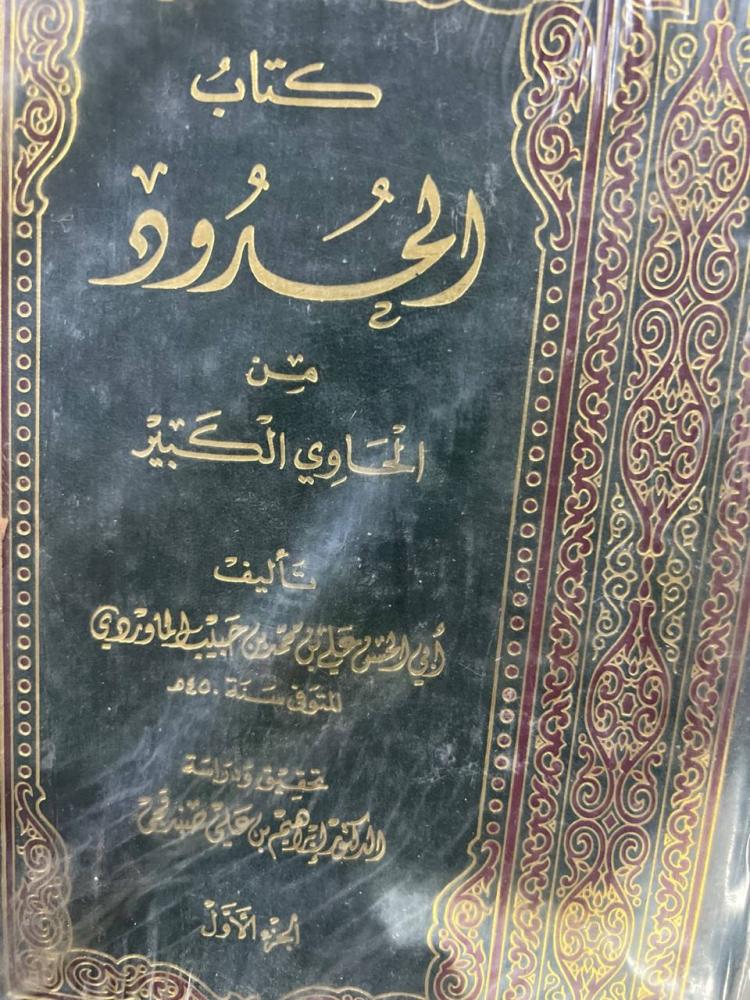 كتابُ
الحُدُود
مِن
الحَاوِي الكَبيْر
تأليف
أبي الحسن علي بن محمد بن حبيب الماوردي
المتوفى سَنَة ٤٥٠هـ
تحقيق ودراسة
الدكتور إبراهيم بن علي صندقجي
الجزء الأوّل